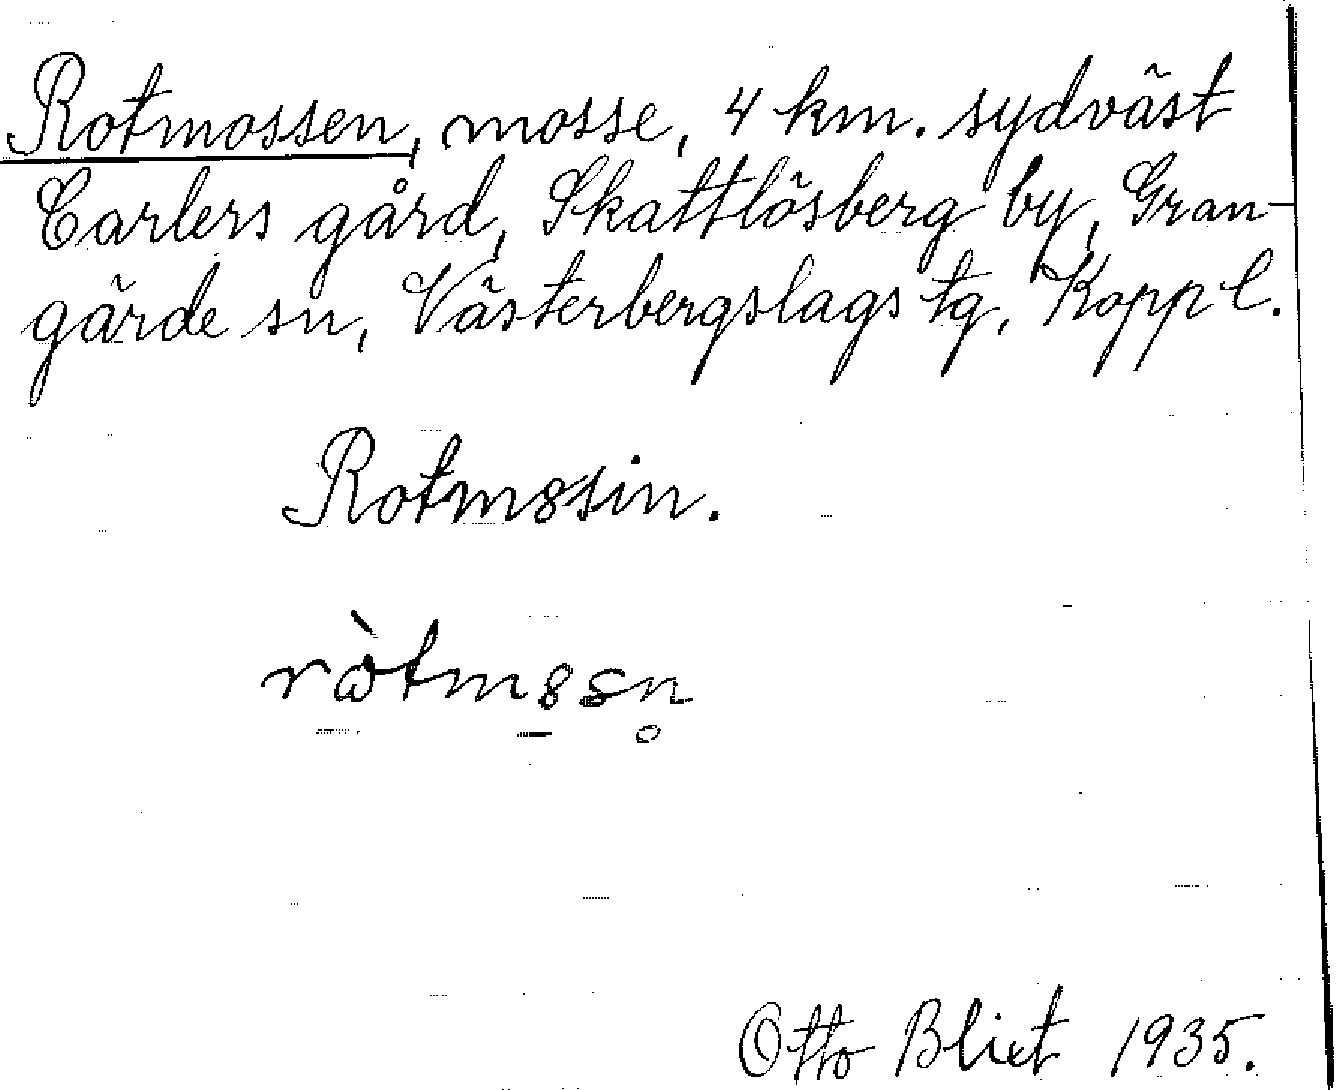 Rotmossen, mosse, 4 km. sydväst
Carlers gård, Skattlösberg by, Gran-
gärde sn, Västerbergslags tg, Kopp l.
Rotm8sin.
ròtm8sn̥
Otto Blixt 1935.